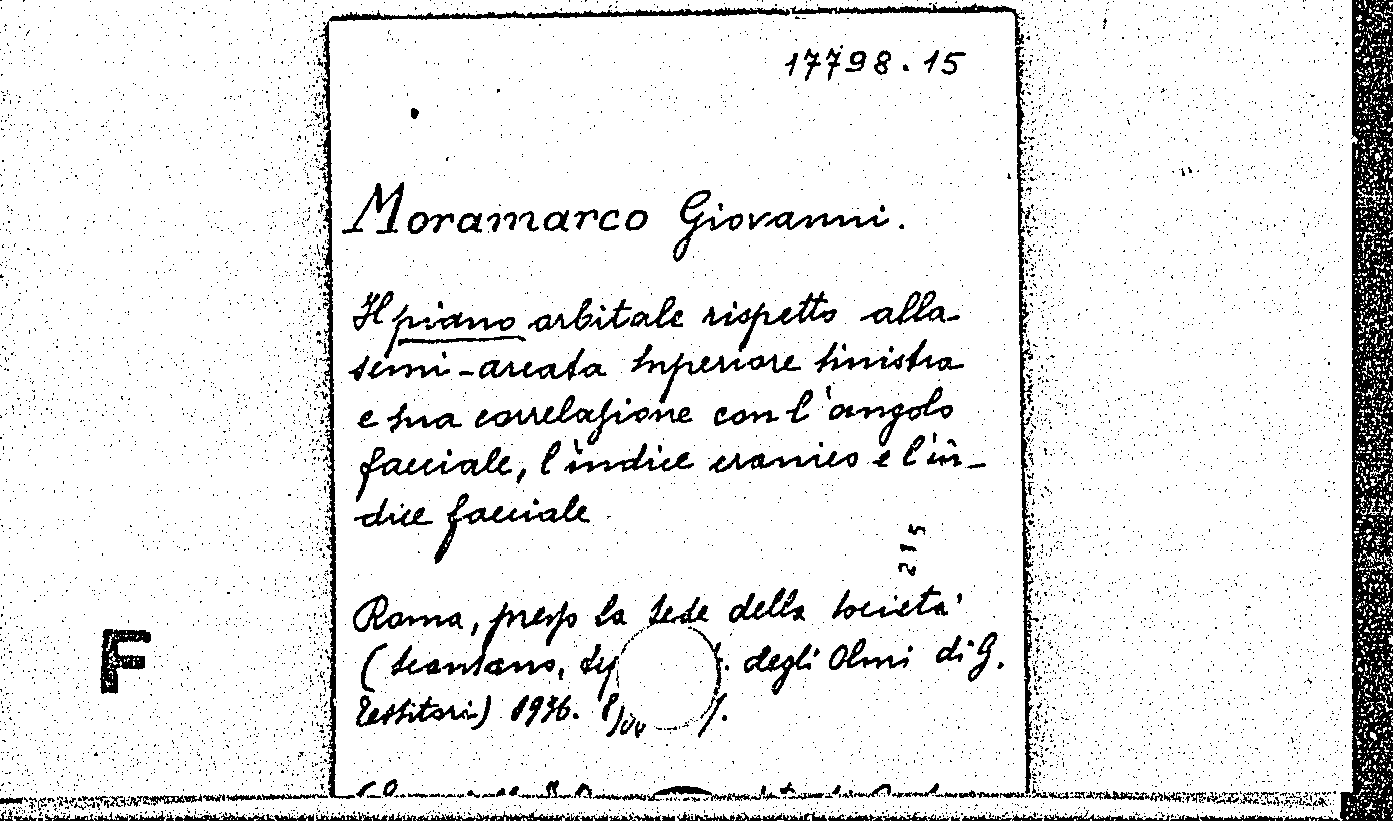 17798.15
Moramarco Giovanni.
Il piano orbitale rispetto alla
semi-arcata superiore sinistra
e sua correlazione con l'angolo
facciale, l'indice cranico e l'in-
dice facciale
215
Roma, presso la sede della società
(Scansano, degli Olmi di G.
Tessitori) 1936. 8
F